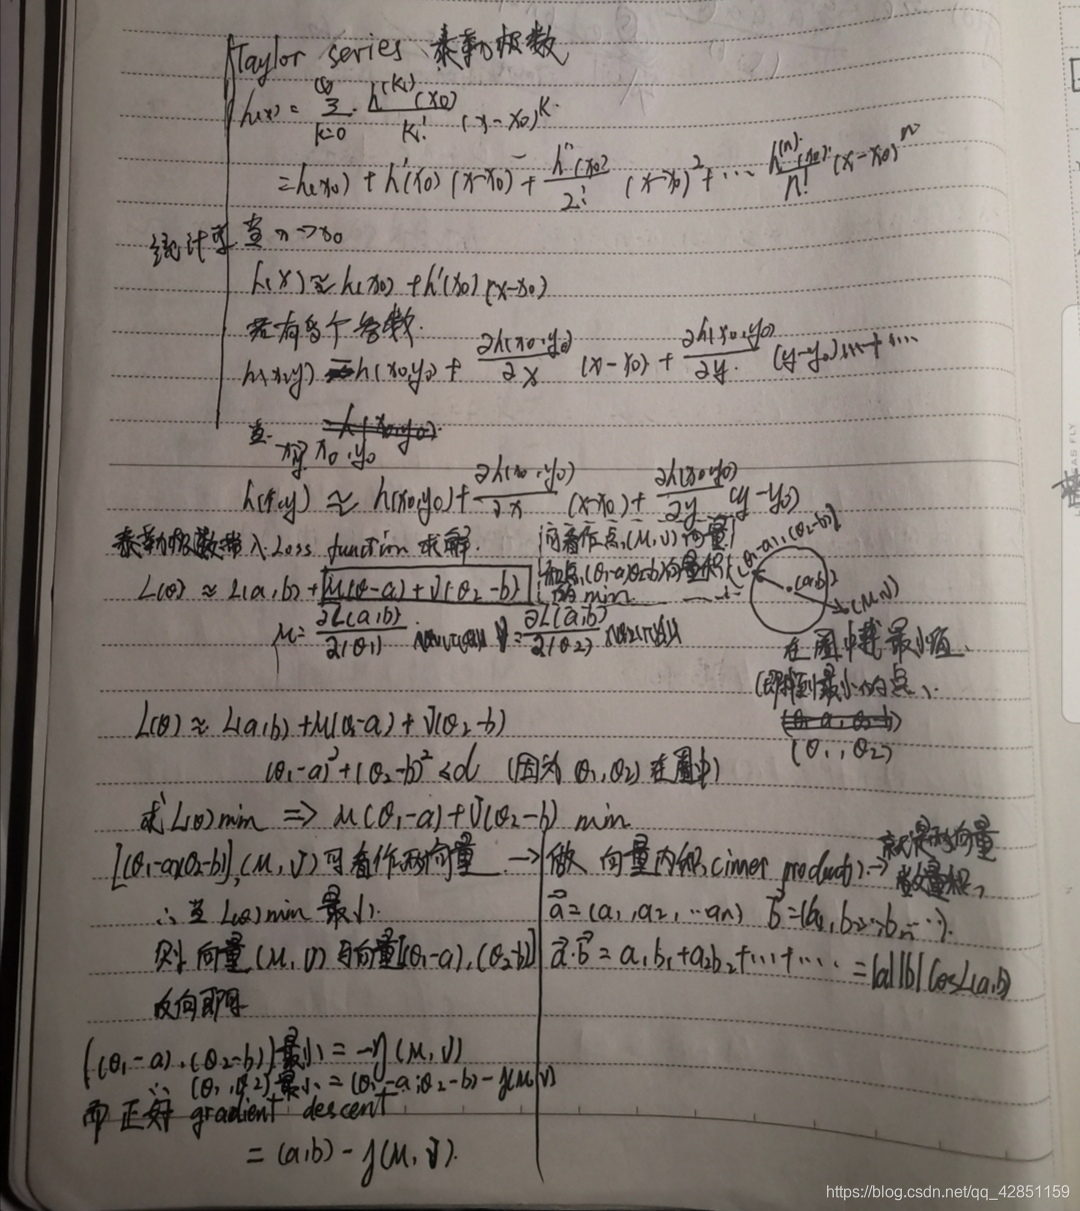 Taylor series 泰勒级数
h(x) = ∑_{k=0}^{∞} h^{(k)}(x0)/k! (x-x0)^k
= h(x0) + h'(x0)(x-x0) + h''(x0)/2! (x-x0)^2 + ... h^{(n)}(x0)/n! (x-x0)^n
当 x→x0
h(x) ≈ h(x0) + h'(x0)(x-x0)
若有多个参数.
h(x,y) = h(x0,y0) + ∂h(x0,y0)/∂x (x-x0) + ∂h(x0,y0)/∂y (y-y0) + ...
当
x,y x0,y0
h(x,y) ≈ h(x0,y0) + ∂h(x0,y0)/∂x (x-x0) + ∂h(x0,y0)/∂y (y-y0)
泰勒级数带入 Loss function 求解.
L(θ) ≈ L(a,b) + μ(θ1-a) + ν(θ2-b)
可看作点(μ,ν)向量
和点(θ1-a)(θ2-b)向量积
的min
(θ1-a),(θ2-b)
(a,b)
(μ,ν)
μ = ∂L(a,b)/∂(θ1) ν = ∂L(a,b)/∂(θ2)
在圈中找最小值
(即找到最小的点)
(θ1, θ2)
L(θ) ≈ L(a,b) + μ(θ1-a) + ν(θ2-b)
(θ1-a)^2 + (θ2-b)^2 ≤ d (因为 θ1,θ2) 在圈中)
求 L(θ) min ⇒ μ(θ1-a) + ν(θ2-b) min
[(θ1-a)(θ2-b)],(μ,ν) 可看作两向量 → 做 向量内积(inner product) → 就是两向量
数量积
∴ 当 L(θ) min 最小
则 向量(μ,ν) 与向量[(θ1-a),(θ2-b)]
反向即可
a⃗ = (a1, a2, ... an) b⃗ = (b1, b2, ... bn ...)
a⃗·b⃗ = a1b1 + a2b2 + ... + ... = |a||b| cos∠(a,b)
[(θ1-a),(θ2-b)] 最小 = -η(μ,ν)
∴ (θ1,θ2) 最小 = (θ1-a,θ2-b) - η(μ,ν)
而正好 gradient descent
= (a,b) - η(μ,ν).
https://blog.csdn.net/qq_42851159